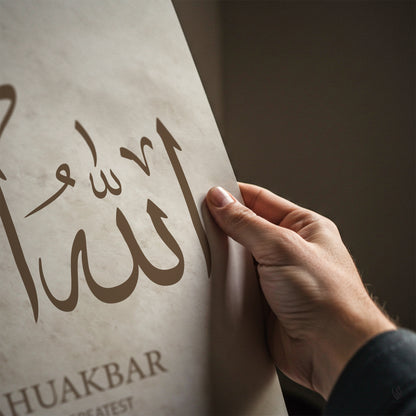 اللهُ
HUAKBAR
REATEST